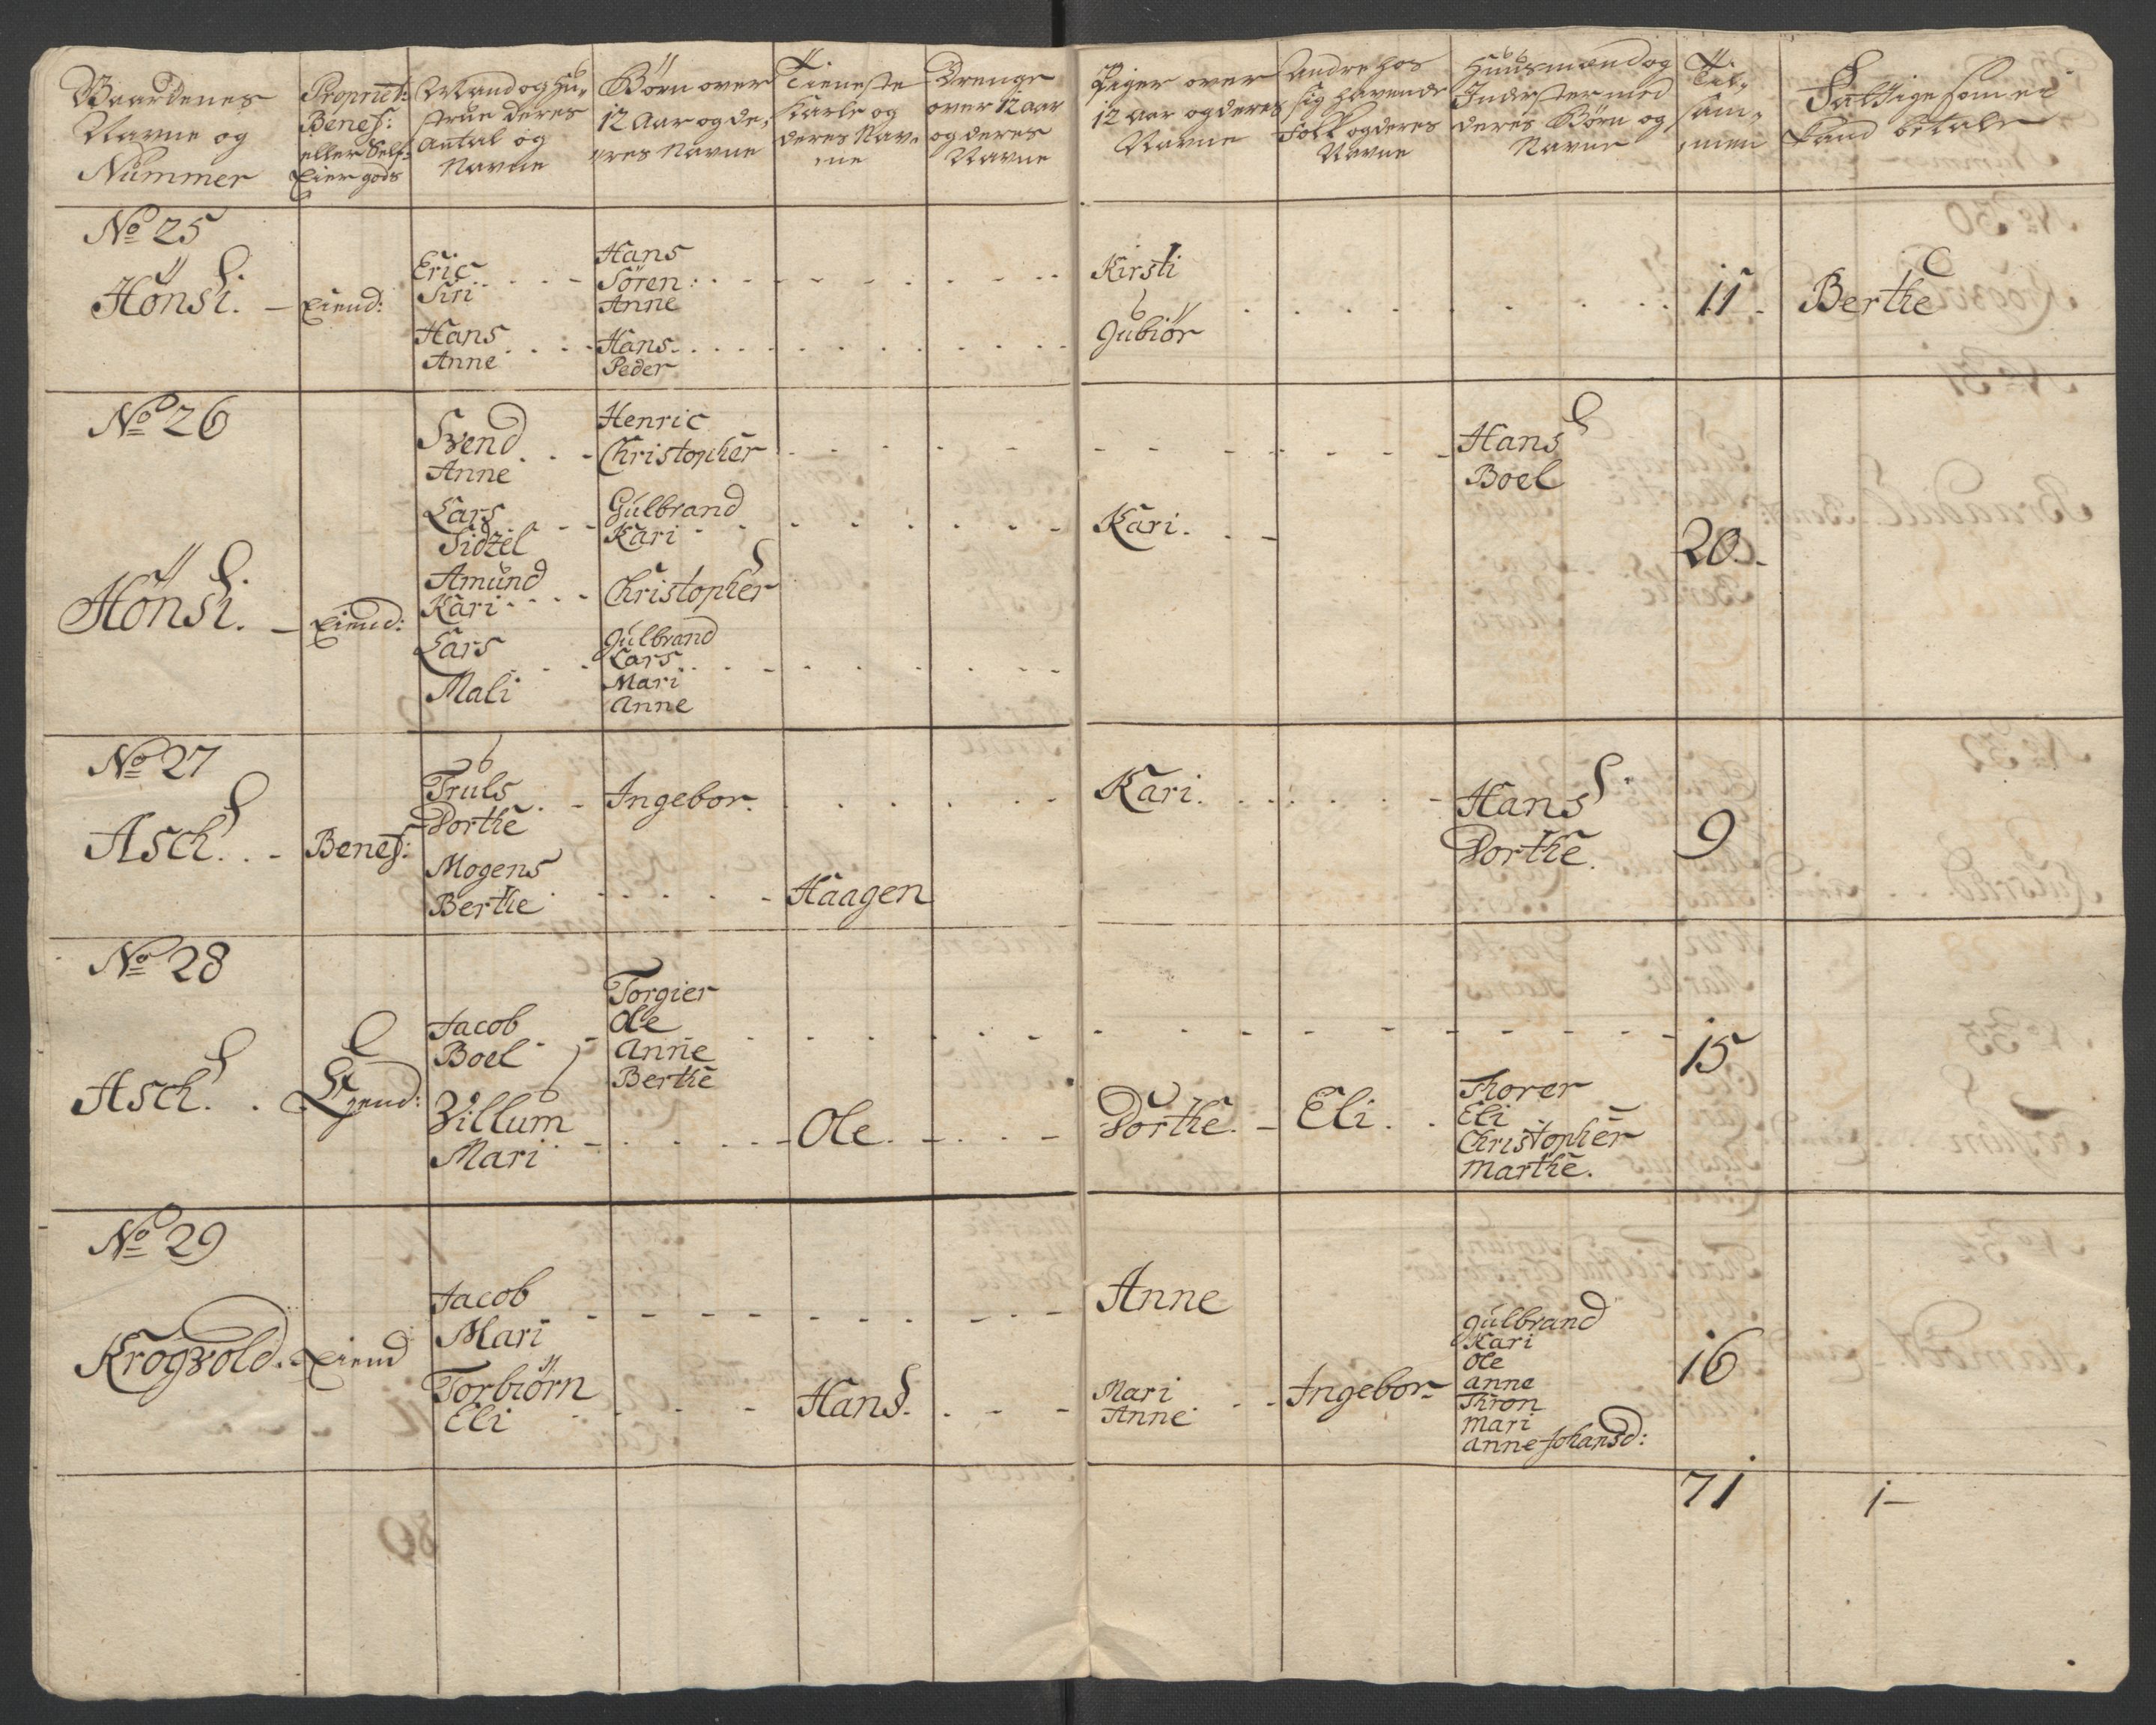 Gaardenes Navne og Nummer
Propriet: Benef: eller Self Eier gods
Mand og Hustrue deres Antal og Navne
Børn over 12 Aar og deres Navne
Tieneste Karle og deres Navne
Drenge over 12 Aar og deres Navne
Piger over 12 Aar og deres Navne
Andre hos sig havende Folk og deres Navne
Huusmænd og Inderster med deres Børn og Navne
Tilsammen
Fattige som ei kand betale
No 25
Hönsi.
Eiend:
Eric
Siri
Hans
Anne
Hans
Sören
Anne
Hans
Peder
Kirsti
Gubiör
11
Berthe
No 26
Hönsi.
Eiend:
Svend
Anne
Lars
Sidzel
Amund
Kari
Lars
Mali
Henric
Christopher
Gulbrand
Kari
Christopher
Gulbrand
Lars
Mari
Anne
Kari
Hans
Boel
20
No 27
Asch.
Benef:
Truls
Dorthe
Mogens
Berthe
Ingebor
Haagen
Kari
Hans
Dorthe
9
No 28
Asch.
Ejend:
Jacob
Boel
Villum
Mari
Torgier
Ole
Anne
Berthe
Ole
Dorthe
Eli
Thorer
Eli
Christopher
Marthe.
15
No 29
Krogvold
Eiend
Jacob
Mari
Torbiörn
Eli
Hans
Anne
Mari
Anne
Ingebor
Gulbrand
Kari
Ole
Anne
Thron
Mari
Anne Johansd:
16
71
1